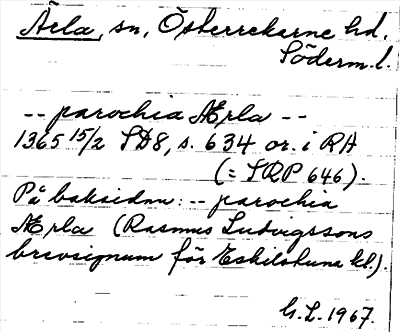 Ärla, sn, Österrekarne hd.
Söderm. l.
-- parochia Ærla --
1365 15/2 SD8, s. 634 or. i RA
(= SRP 646).
På baksidan: -- parochia
Ærla (Rasmus Ludvigssons
brevsignum för Eskilstuna kl.).
G.L. 1967.